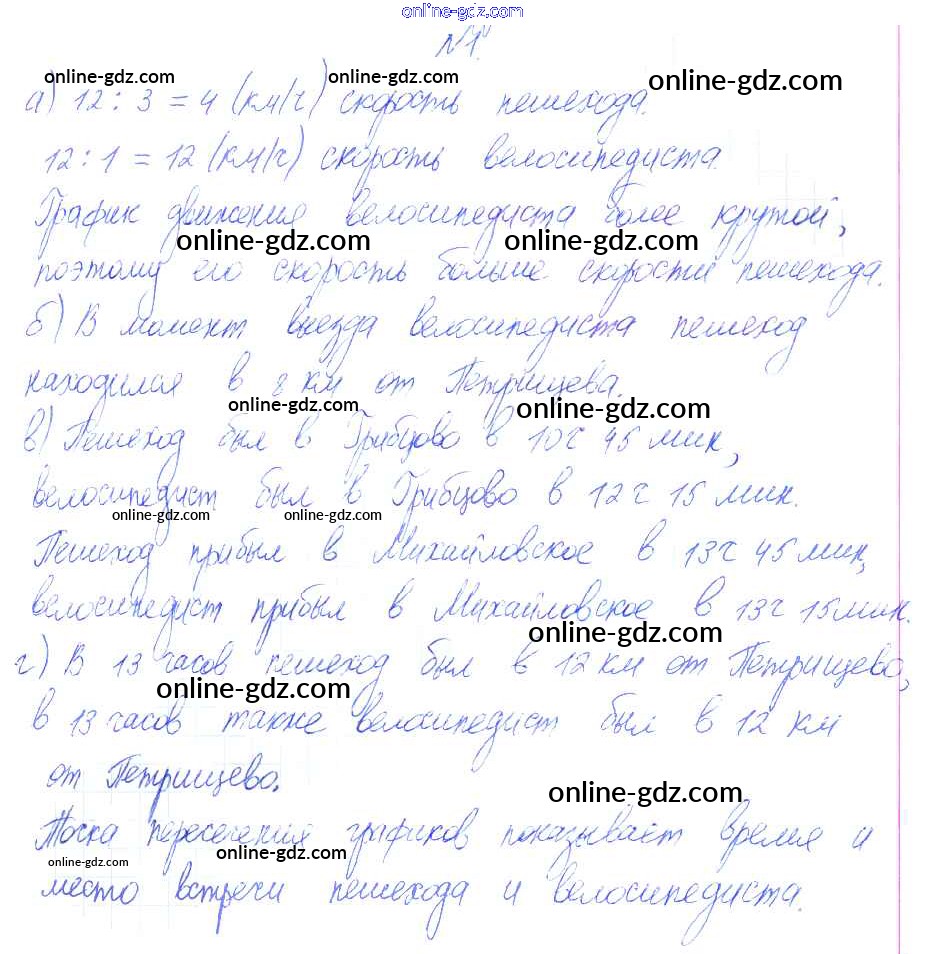 online-gdz.com
№1.
online-gdz.com online-gdz.com online-gdz.com
а) 12 : 3 = 4 (км/ч) скорость пешехода.
12 : 1 = 12 (км/ч) скорость велосипедиста.
График движения велосипедиста более крутой,
online-gdz.com online-gdz.com
поэтому его скорость больше скорости пешехода.
б) В момент выезда велосипедиста пешеход
находился в 8 км от Петрищева.
online-gdz.com online-gdz.com
в) Пешеход был в Грибцово в 10 ч 45 мин,
велосипедист был в Грибцово в 12 ч 15 мин.
online-gdz.com online-gdz.com
Пешеход прибыл в Михайловское в 13 ч 45 мин,
велосипедист прибыл в Михайловское в 13 ч 15 мин.
online-gdz.com
г) В 13 часов пешеход был в 12 км от Петрищево,
online-gdz.com
в 13 часов также велосипедист был в 12 км
от Петрищево.
online-gdz.com
Точка пересечения графиков показывает время и
online-gdz.com online-gdz.com
место встречи пешехода и велосипедиста.